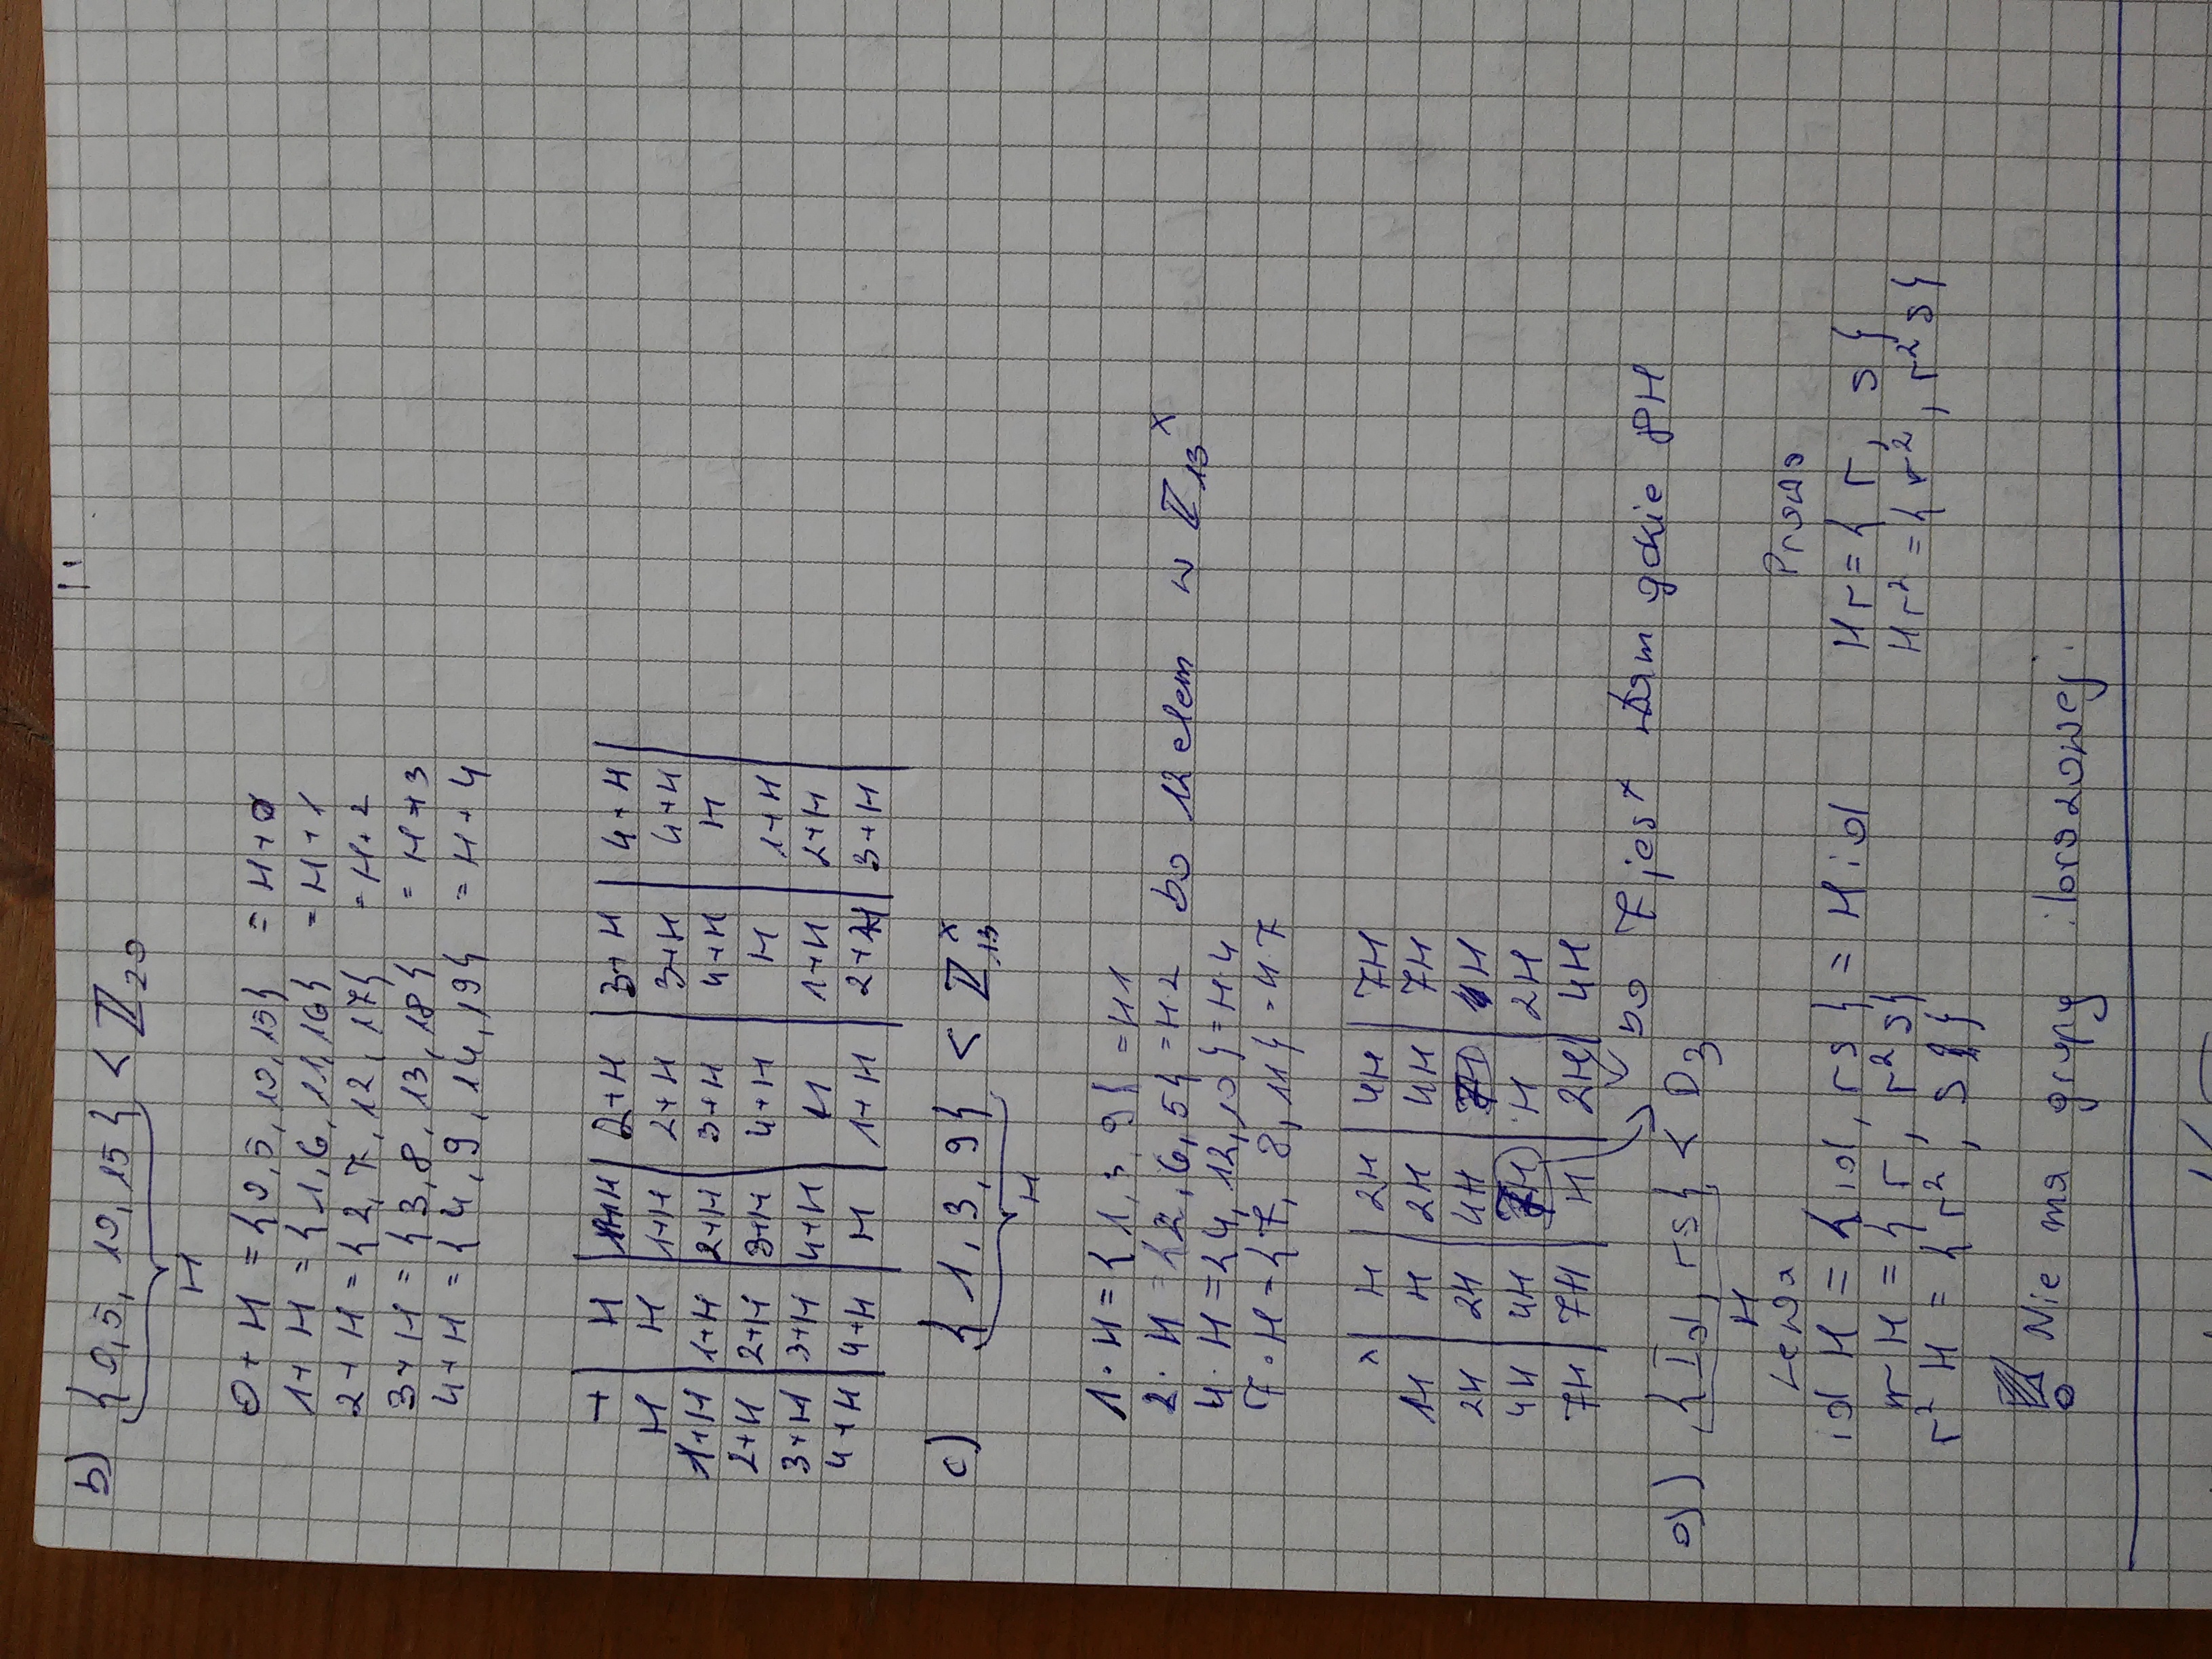 b) {0,5,10,15} < ℤ₂₀
H
0+H = {0,5,10,15} = H+0
1+H = {1,6,11,16} = H+1
2+H = {2,7,12,17} = H+2
3+H = {3,8,13,18} = H+3
4+H = {4,9,14,19} = H+4
+ | H | 1+H | 2+H | 3+H | 4+H |
H | H | 1+H | 2+H | 3+H | 4+H
1+H | 1+H | 2+H | 3+H | 4+H | H
2+H | 2+H | 3+H | 4+H | H | 1+H
3+H | 3+H | 4+H | H | 1+H | 2+H
4+H | 4+H | H | 1+H | 2+H | 3+H
c) {1,3,9} < ℤ₁₃ˣ
H
1·H = {1,3,9} = H1
2·H = {2,6,5} = H·2 bo 12 elem w ℤ₁₃ˣ
4·H = {4,12,10} = H·4
7·H = {7,8,11} = H·7
x | H | 2H | 4H | 7H
1H | H | 2H | 4H | 7H
2H | 2H | 4H | 7H | H
4H | 4H | 7H | H | 2H
7H | 7H | H | 2H | 4H
bo 7 jest tam gdzie 8H
d) {Id, rs} < D₃
H
Lewa Prawa
id H = {id, rs} = H id Hr = {r, s}
rH = {r, r²s} Hr² = {r², r²s}
r²H = {r², s}
! Nie ma grupy ilorazowej.